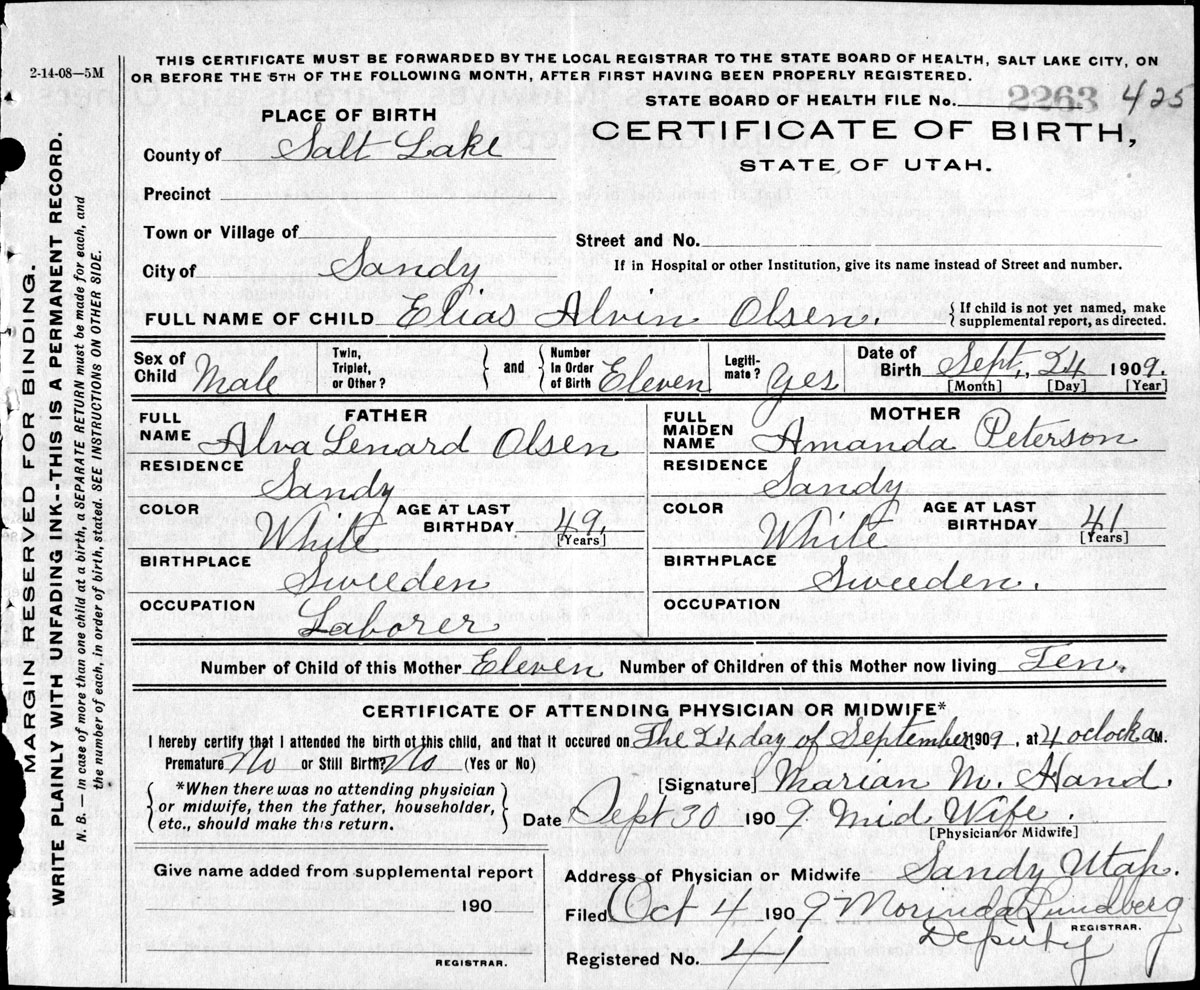 2-14-08—5M
THIS CERTIFICATE MUST BE FORWARDED BY THE LOCAL REGISTRAR TO THE STATE BOARD OF HEALTH, SALT LAKE CITY, ON
OR BEFORE THE 5TH OF THE FOLLOWING MONTH, AFTER FIRST HAVING BEEN PROPERLY REGISTERED.
STATE BOARD OF HEALTH FILE No. 2263 425
PLACE OF BIRTH
CERTIFICATE OF BIRTH,
STATE OF UTAH.
County of Salt Lake
Precinct
Town or Village of
Street and No.
City of Sandy
If in Hospital or other Institution, give its name instead of Street and number.
FULL NAME OF CHILD Elias Alvin Olsen. { If child is not yet named, make
supplemental report, as directed.
Sex of Child Male Twin, Triplet, or Other? } and { Number In Order of Birth Eleven Legiti-mate? Yes Date of Birth Sept., 24 1909.
[Month] [Day] [Year]
FATHER
FULL NAME Alva Lenard Olsen
RESIDENCE Sandy
COLOR White AGE AT LAST BIRTHDAY 49. [Years]
BIRTHPLACE Sweeden
OCCUPATION Laborer
MOTHER
FULL MAIDEN NAME Amanda Peterson
RESIDENCE Sandy
COLOR White AGE AT LAST BIRTHDAY 41 [Years]
BIRTHPLACE Sweeden.
OCCUPATION
Number of Child of this Mother Eleven Number of Children of this Mother now living Ten.
CERTIFICATE OF ATTENDING PHYSICIAN OR MIDWIFE*
I hereby certify that I attended the birth of this child, and that it occured on The 24 day of September 1909, at 4 oclock a M.
Premature? No or Still Birth? No (Yes or No)
[Signature] Marian M. Hand
{ *When there was no attending physician
or midwife, then the father, householder,
etc., should make this return. }
Date Sept 30 1909. Mid Wife.
[Physician or Midwife]
Give name added from supplemental report
190
REGISTRAR.
Address of Physician or Midwife Sandy Utah.
Filed Oct 4 1909 Morinda Lundberg
REGISTRAR.
Deputy
Registered No. 41
MARGIN RESERVED FOR BINDING.
WRITE PLAINLY WITH UNFADING INK--THIS IS A PERMANENT RECORD.
N. B. — In case of more than one child at a birth, a SEPARATE RETURN must be made for each, and
the number of each, in order of birth, stated. SEE INSTRUCTIONS ON OTHER SIDE.